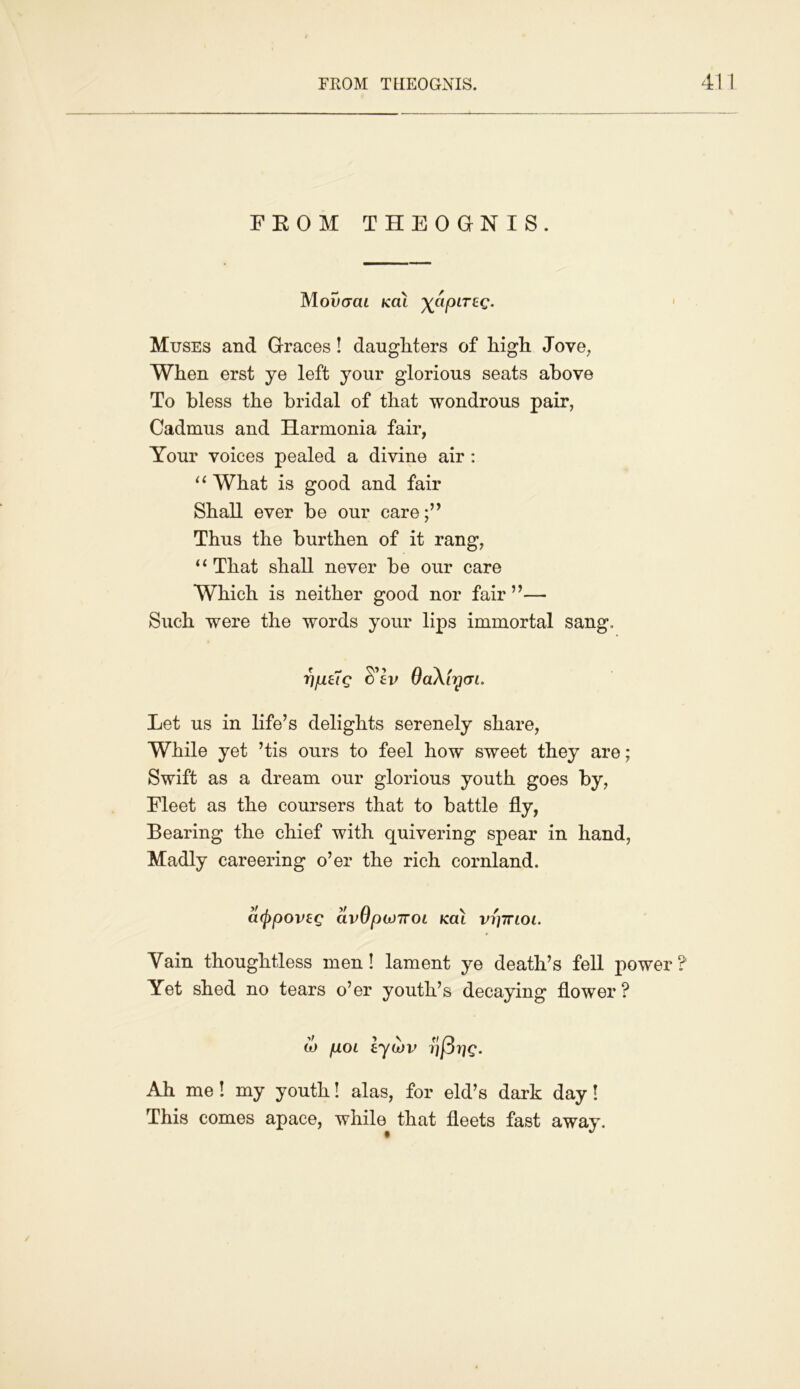 FROM THEOGNIS. 411
FROM THEOGNIS.
Μοῦσαι καὶ χάριτες.
Muses and Graces! daughters of high Jove,
When erst ye left your glorious seats above
To bless the bridal of that wondrous pair,
Cadmus and Harmonia fair,
Your voices pealed a divine air:
“What is good and fair
Shall ever be our care;”
Thus the burthen of it rang,
“That shall never be our care
Which is neither good nor fair”—
Such were the words your lips immortal sang.
ἡμεῖς δ’ἐν θαλίῃσι.
Let us in life’s delights serenely share,
While yet ’tis ours to feel how sweet they are;
Swift as a dream our glorious youth goes by,
Fleet as the coursers that to battle fly,
Bearing the chief with quivering spear in hand,
Madly careering o’er the rich cornland.
ἄφρονες ἄνθρωποι καὶ νήπιοι.
Vain thoughtless men! lament ye death’s fell power?
Yet shed no tears o’er youth’s decaying flower?
ὤ μοι ἐγὼν ἥβης.
Ah me! my youth! alas, for eld’s dark day!
This comes apace, while that fleets fast away.